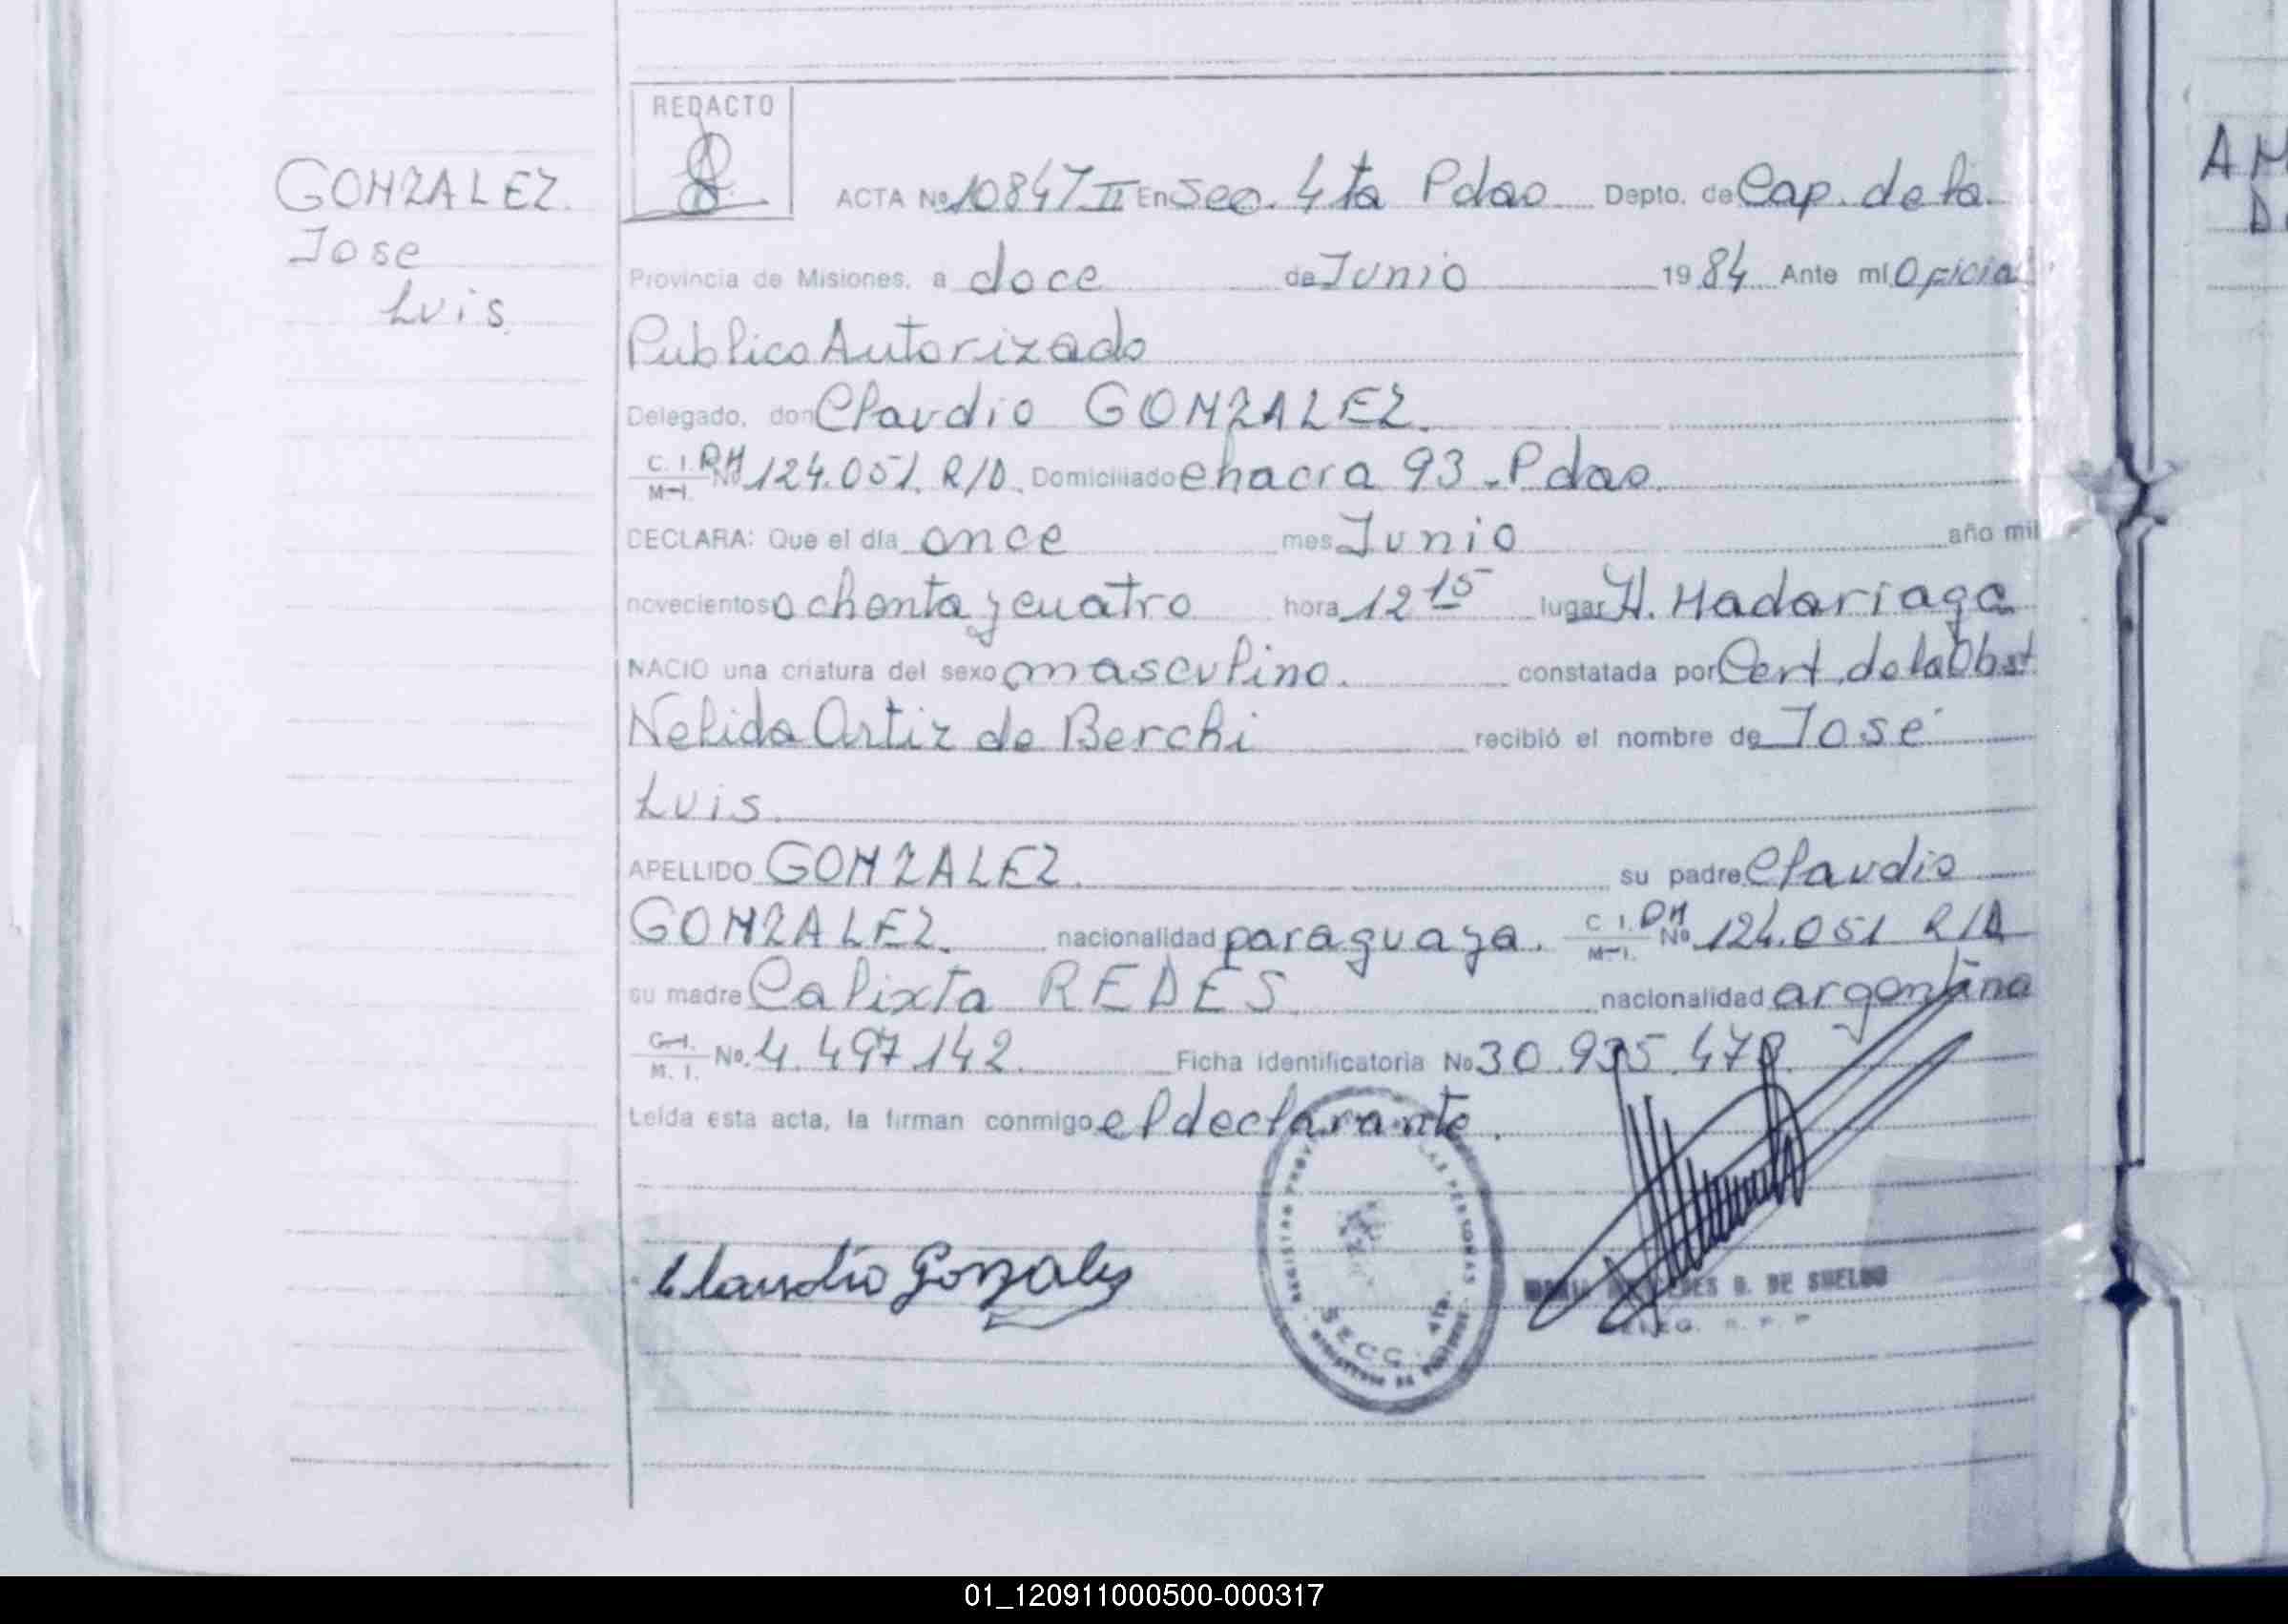 REDACTO
GONZALEZ.
Jose
Luis
ACTA No 10847 II En Sec. 4ta Pdas Depto. de Cap. de la
Provincia de Misiones, a doce de Junio 1984 Ante mi Oficial
Publico Autorizado
Delegado, don Claudio GONZALEZ.
C. I. DNI
M-I. No 124.051. R/D. Domiciliado chacra 93 - Pdas.
DECLARA: Que el día once mes Junio año mil
novecientos ochenta y cuatro hora 12 15 lugar H. Madariaga
NACIO una criatura del sexo masculino. constatada por Cert. de la Obst
Nelida Ortiz de Berchi recibió el nombre de José
Luis.
APELLIDO GONZALEZ. su padre Claudio
GONZALEZ. nacionalidad paraguaya. C. I. DNI
M-I. No 124.051 R/D
su madre Calixta REDES nacionalidad argentina
C-I.
M. I. No. 4.497.142. Ficha identificatoria No 30.935.478.
Leída esta acta, la firman conmigo el declarante.
Claudio Gonzalez
REGISTRO PROV. LAS PERSONAS
SECC. 4ta.
DES B. DE SUELDO
DELEG. R. P. P
AM
D
01_120911000500-000317